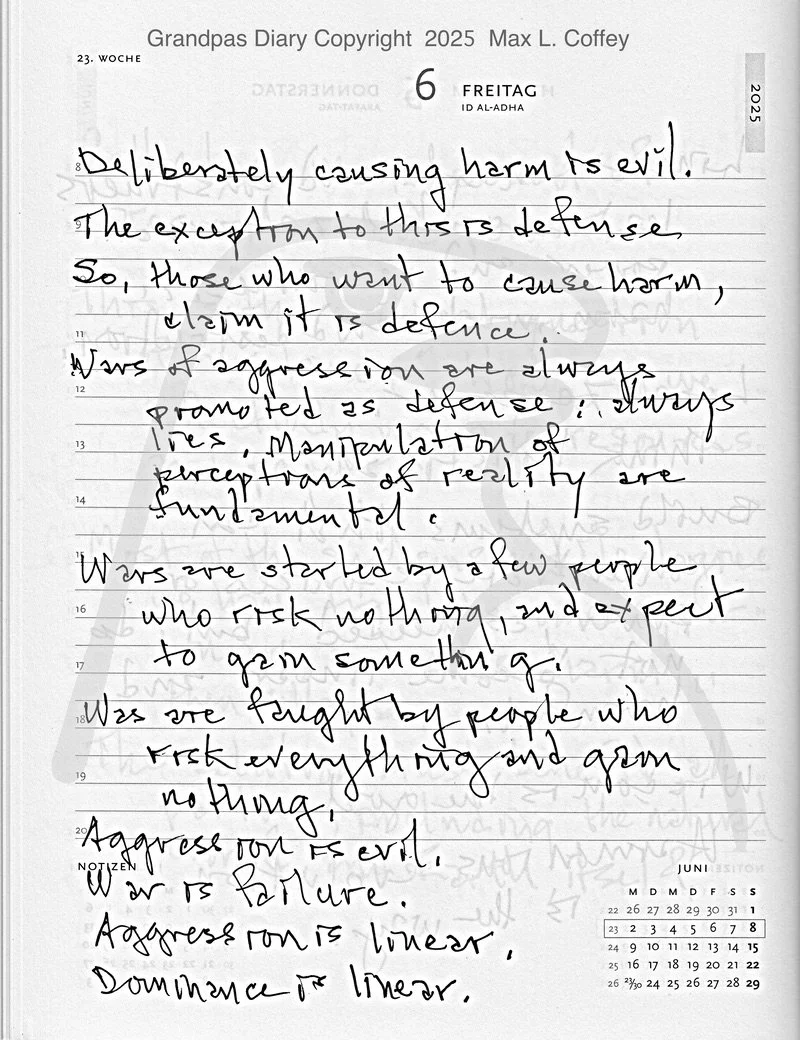 Grandpas Diary Copyright 2025 Max L. Coffey
23. WOCHE
6 FREITAG
ID AL-ADHA
2025
8 Deliberately causing harm is evil.
9 The exception to this is defense,
So, those who want to cause harm,
claim it is defence.
11
Wars of aggression are always
12
promoted as defense : always
13 lies. Manipulation of
perceptions of reality are
14 fundamental.
15 Wars are started by a few people
16 who risk nothing, and expect
17 to gain something.
18 Was are faught by people who
risk everything and gain
19 nothing,
20 Aggression is evil.
NOTIZEN
War is failure.
Aggression is linear,
Dominance is linear.
JUNI
M D M D F S S
22 26 27 28 29 30 31 1
23 2 3 4 5 6 7 8
24 9 10 11 12 13 14 15
25 16 17 18 19 20 21 22
26 23/30 24 25 26 27 28 29